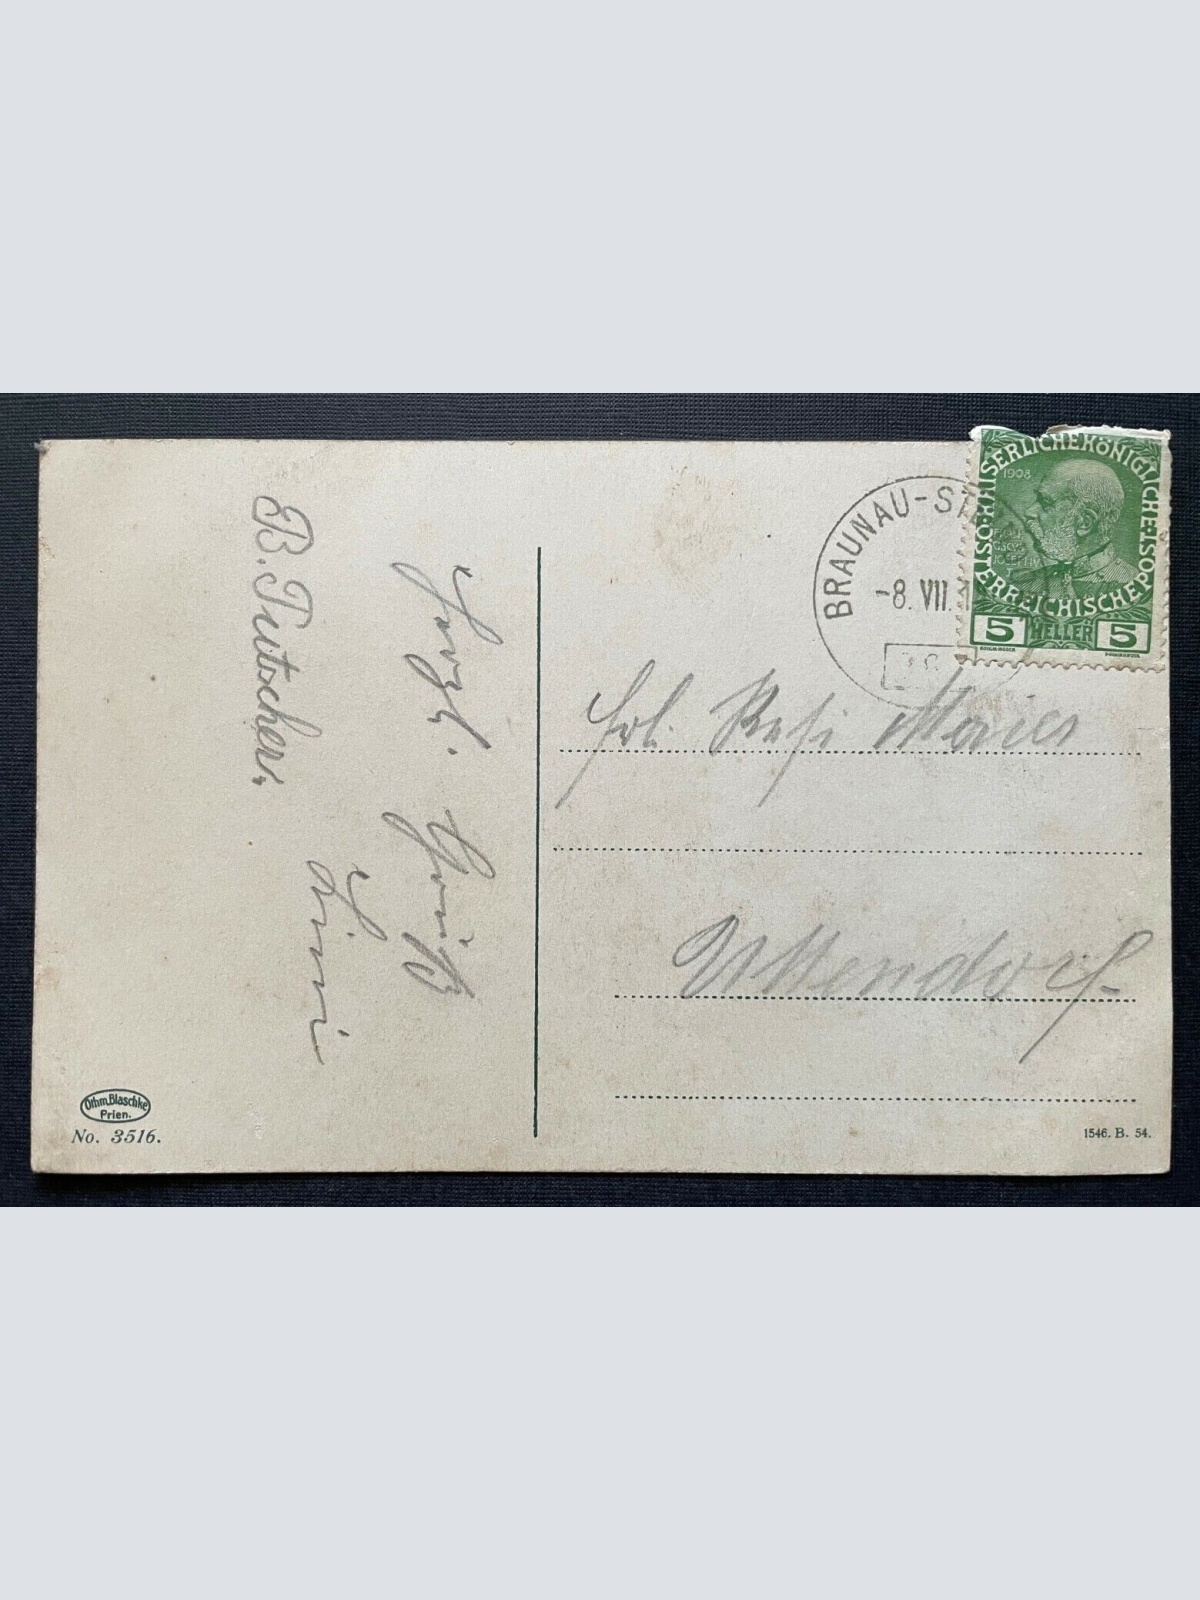 B. Tutscher.
Herzl. Gruß
Linni
BRAUNAU-ST
-8. VII. 1
KAISERLICHE KÖNIGLICHE
ÖSTERREICHISCHE POST
1908
5 HELLER 5
Frl. Resi Maier
Uttendorf
Othm. Blaschke
Prien.
No. 3516.
1546. B. 54.